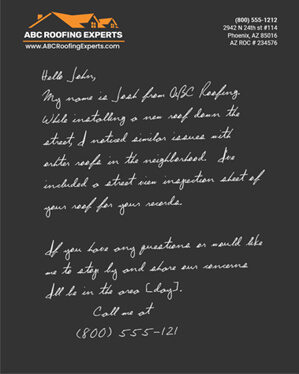 ABC ROOFING EXPERTS
www.ABCRoofingExperts.com
(800) 555-1212
2942 N 24th st #114
Phoenix, AZ 85016
AZ ROC # 234576
Hello John,
My name is Josh from ABC Roofing.
While installing a new roof down the
street, I noticed similar issues with
other roofs in the neighborhood. I've
included a street view inspection sheet of
your roof for your records.
If you have any questions or would like
me to stop by and share our concerns
I'll be in the area [day].
Call me at
(800) 555-121